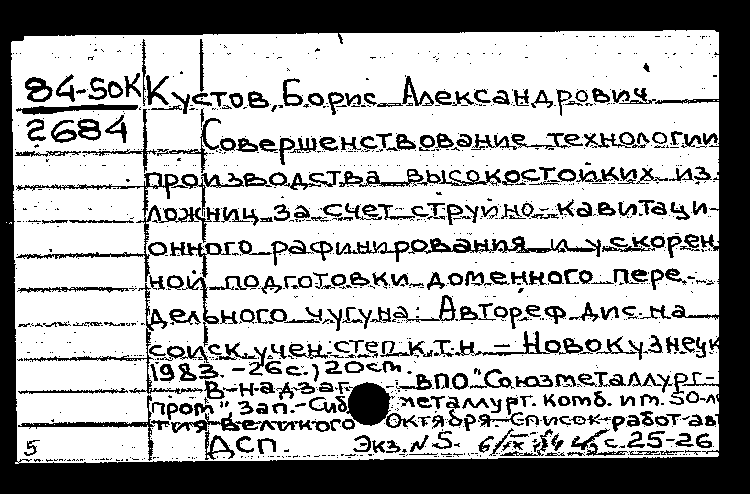 84-50К Кустов, Борис Александрович
2684 Совершенствование технологии
производства высокостойких из-
ложниц за счет струйно-кавитаци-
онного рафинирования и ускорен
ной подготовки доменного пере-
дельного чугуна: Автореф дис на
соиск. учен. степ к.т.н. – Новокузнецк
1983. – 26 с.; 20 см.
В надзаг. ВПО "Союзметаллург-
пром", Зап.-Сиб металлург. комб. им. 50-ле
тия Великого Октября – Список работ авт
с. 25-26
5 ДСП. Экз. № 5.